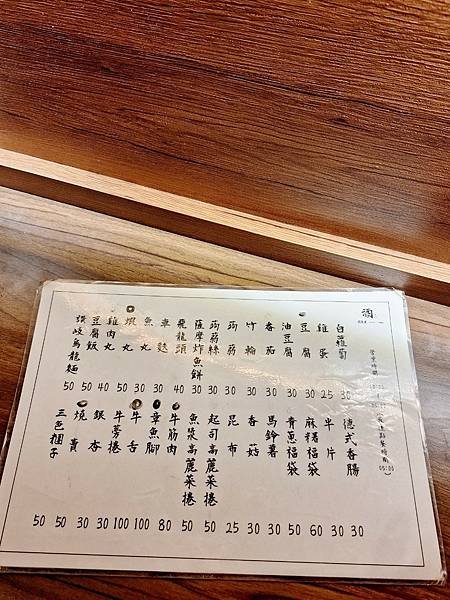 酒
營業時間
白蘿蔔 30
雞蛋 25
豆腐 30
油豆腐 30
番茄 30
竹輪 30
蒟蒻 30
蒟蒻絲 30
薩摩炸魚餅
飛龍頭 40
車麩 30
魚丸 30
蝦丸 50
雞肉丸 40
豆腐飯 50
讚岐烏龍麵 50
德式香腸 30
半片 30
麻糬福袋 60
青蔥福袋 50
馬鈴薯 30
香菇 30
昆布 25
起司高麗菜捲 50
魚漿高麗菜捲 50
牛筋肉 80
章魚腳 100
牛舌 100
牛蒡捲 30
銀杏 30
燒賣 50
三色糰子 50